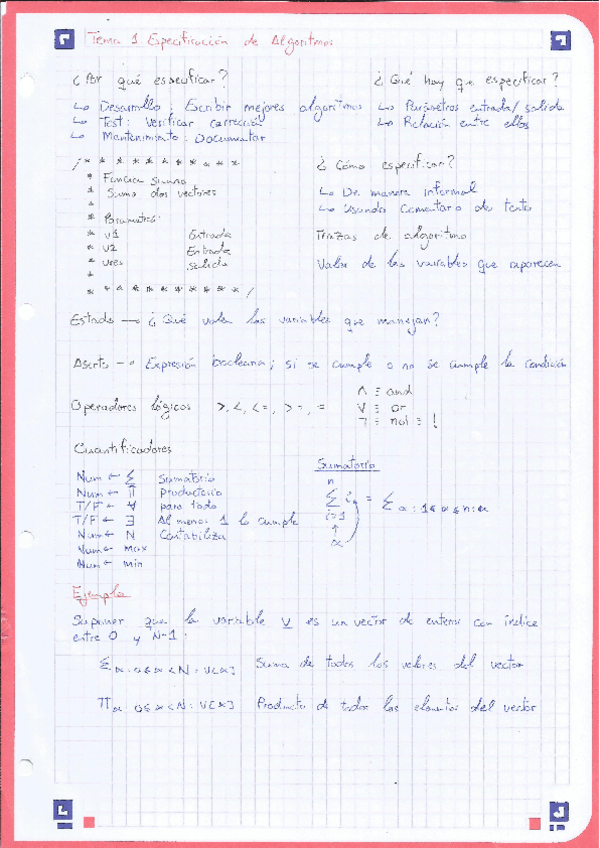 Tema 1 Especificación de Algoritmos
¿Por qué especificar?
↳ Desarrollo: Escribir mejores algoritmos
↳ Test: Verificar corrección
↳ Mantenimiento: Documentar
¿Qué hay que especificar?
↳ Parámetros entrada/salida
↳ Relación entre ellos
/* * * * * * * * * *
* Función
* Suma dos vectores
*
* Parametros:
* v1 Entrada
* v2 Entrada
* vres salida
*
* * * * * * * * * * */
¿Cómo especificar?
↳ De manera informal
↳ Usando comentario de texto
Trazas de algoritmo
Valor de las variables que aparecen
Estado → ¿Qué valen las variables que manejan?
Aserto → Expresión booleana; si se cumple o no se cumple la condición
Operadores lógicos >, <, <=, >=, =
∧ ≡ and
∨ ≡ or
¬ ≡ not ≡ !
Cuantificadores
Num ← Σ Sumatorio
Num ← Π Productorio
T/F ← ∀ para todo
T/F ← ∃ Al menos 1 lo cumple
Num ← N Contabiliza
Num ← max
Num ← min
Sumatorio
n
Σ i = Σ α : 1 ≤ α ≤ n : α
i=1
↑
α
Ejemplo
Suponer que la variable v es un vector de enteros con índice
entre 0 y N-1:
Σ α : 0 ≤ α < N : V[α] Suma de todos los valores del vector
Π α 0 ≤ α < N : V[α] Producto de todos los elementos del vector